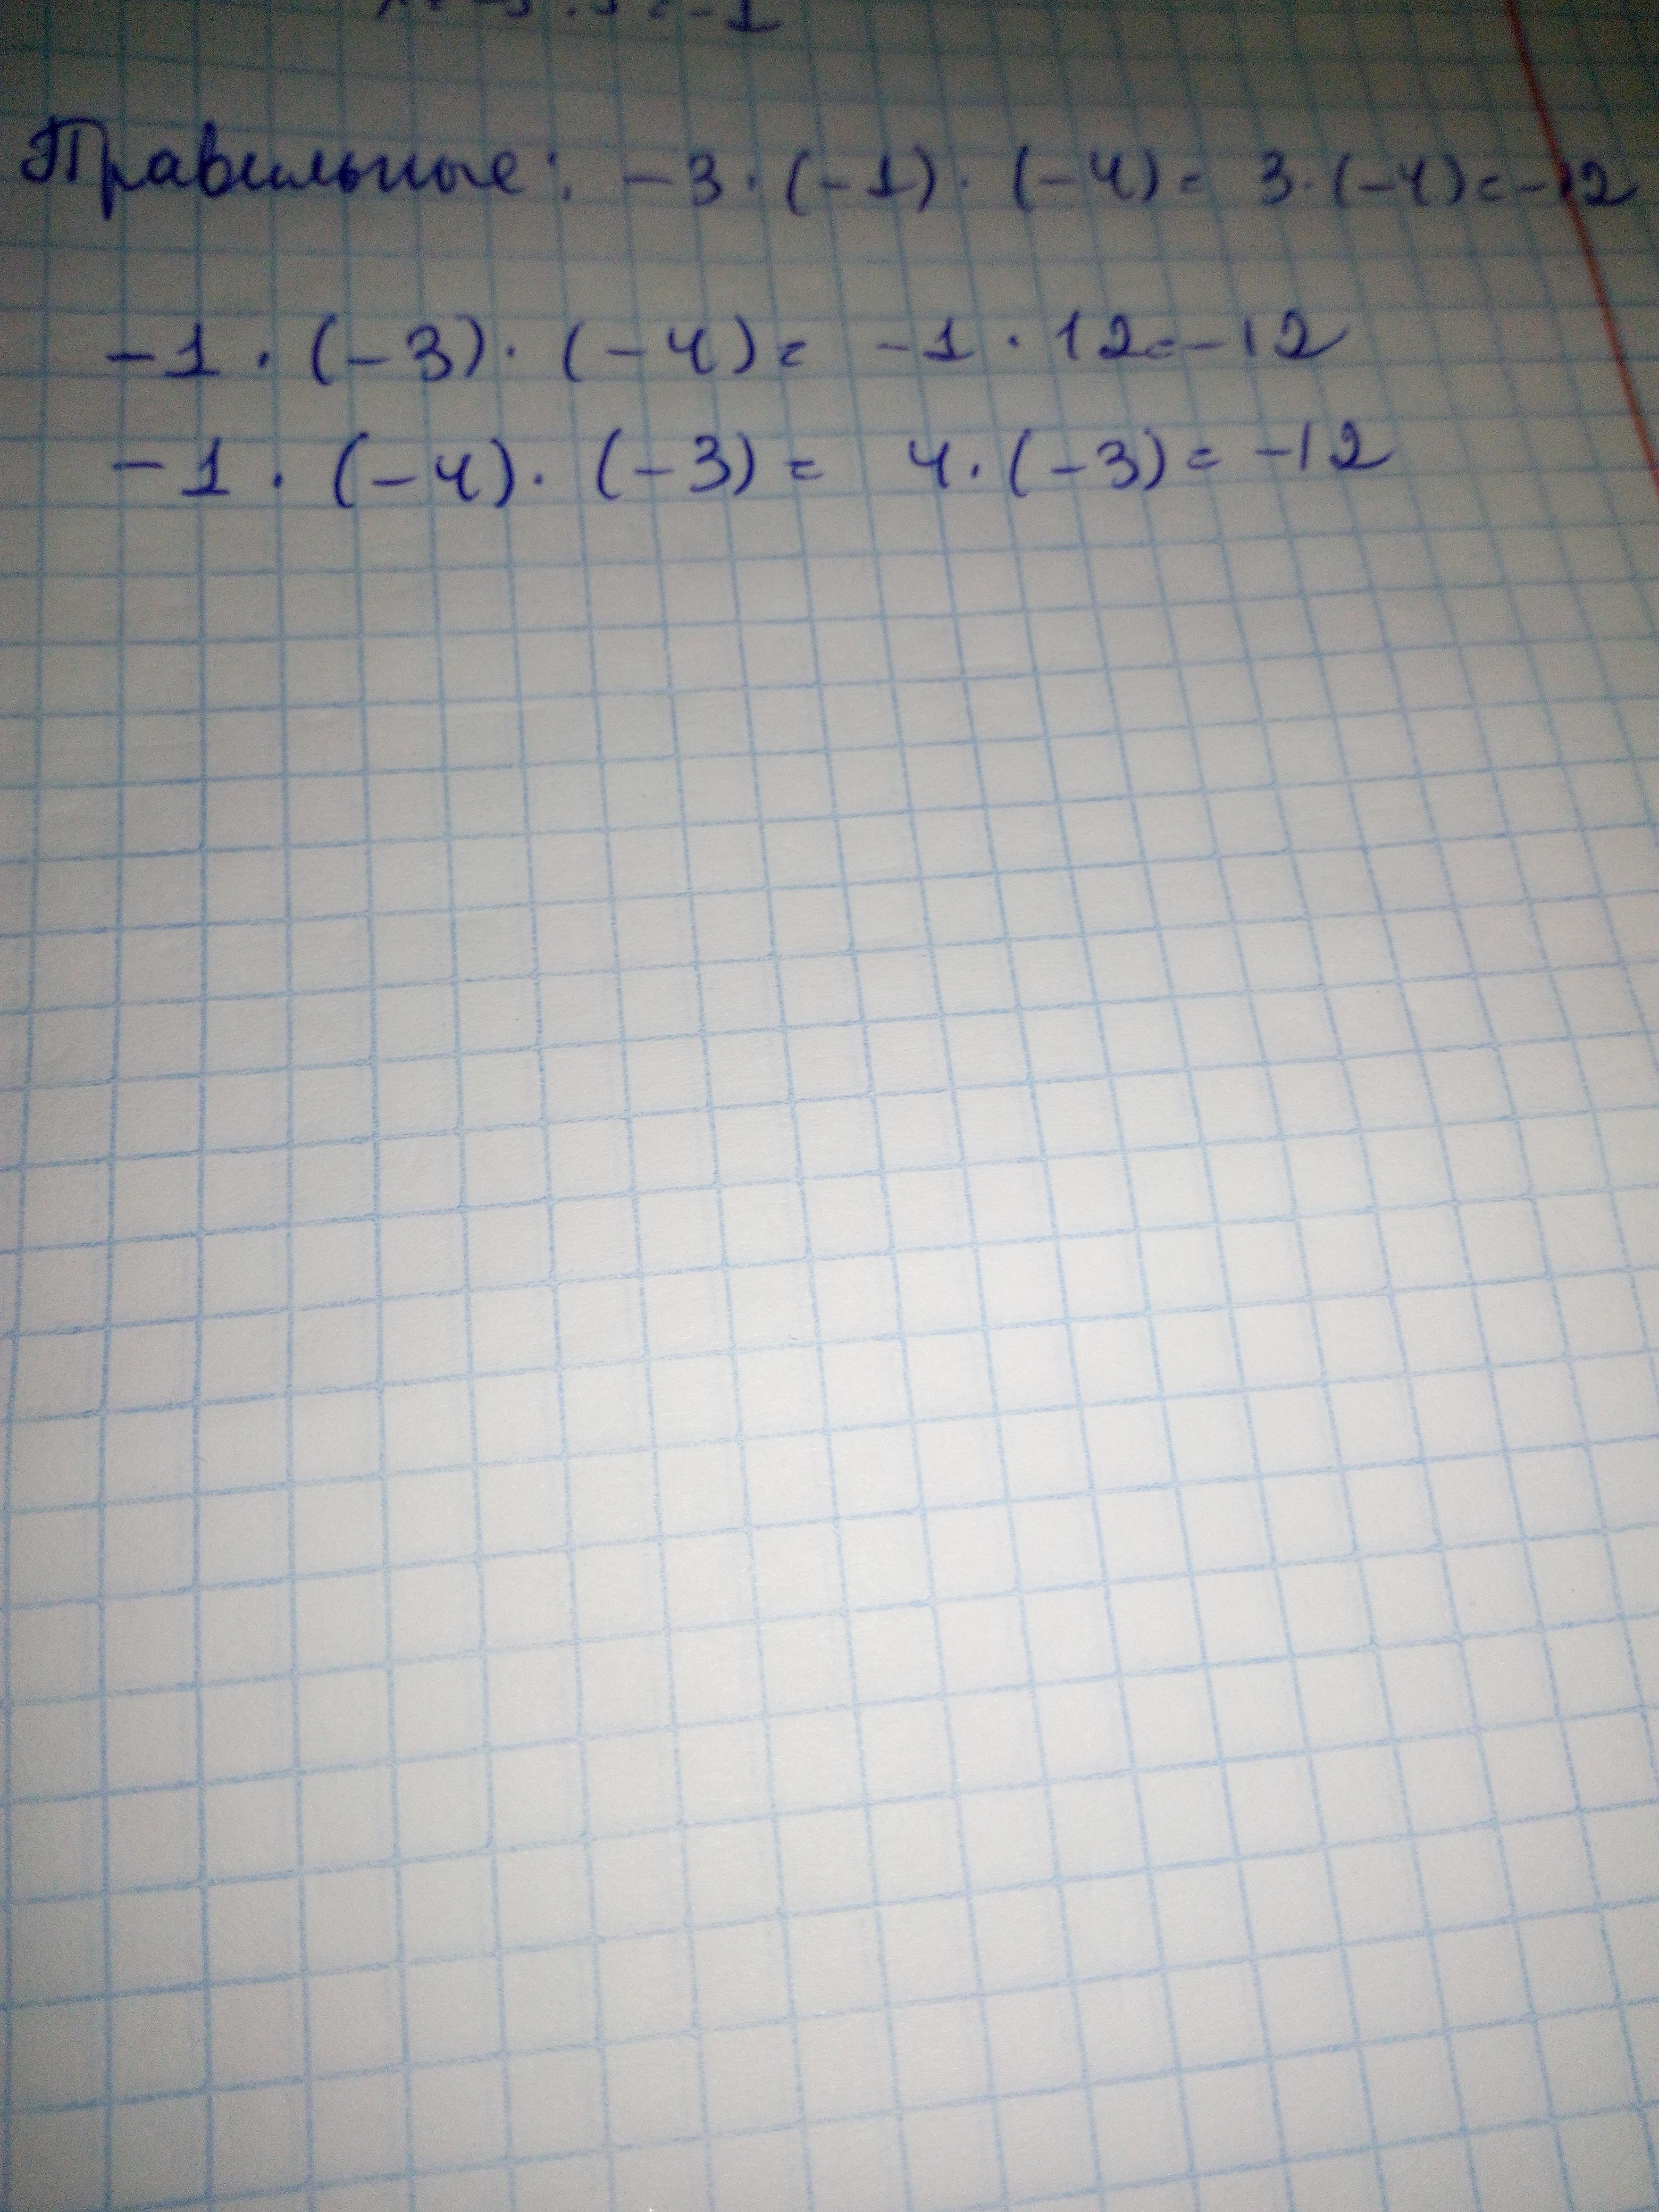 Правильные: -3 · (-1) · (-4) = 3 · (-4) = -12
-1 · (-3) · (-4) = -1 · 12 = -12
-1 · (-4) · (-3) = 4 · (-3) = -12